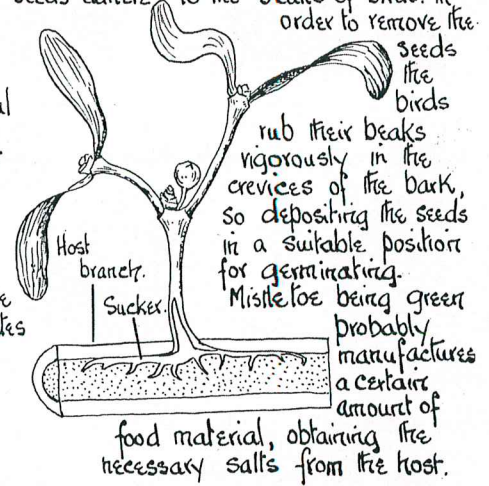 order to remove the
seeds
the
birds
rub their beaks
vigorously in the
crevices of the bark,
so depositing the seeds
in a suitable position
for germinating.
Mistletoe being green
probably
manufactures
a certain
amount of
food material, obtaining the
necessary salts from the host.
Host
branch.
Sucker.